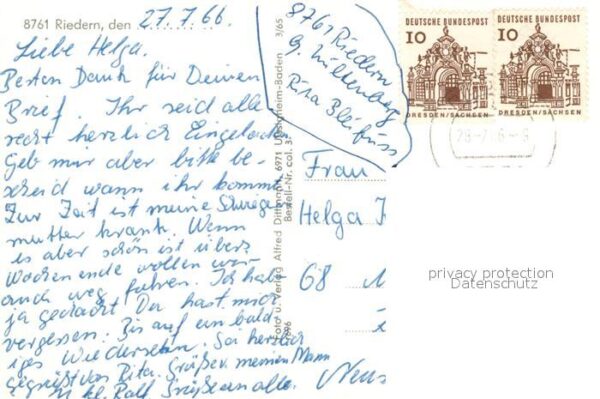 8761 Riedern, den 27.7.66.
Liebe Helga.
Besten Dank für Deinen
Brief. Ihr seid alle
recht herzlich Eingeladen.
Geb mir aber bitte be-
scheid wann ihr kommt
Zur Zeit ist meine Schwieger
mutter krank. Wenn
es aber schön ist übers
Wochenende wollen wir
auch weg fahren. Ich habe
ja gedacht Du hast mich
vergessen. Bis auf ein bald
iges Wiedersehen. Sei herzlich
gegrüßt von Rita. Grüße v. meinen Mann
u. kl. Ralf. Grüße an alle.
8761 Riedern
Rita Bleifuss
Foto u. Verlag Alfred Dittmann, 6971
Bestell-Nr. col. 3
3/65
DEUTSCHE BUNDESPOST
10
DRESDEN/SACHSEN
DEUTSCHE BUNDESPOST
10
DRESDEN/SACHSEN
Frau
Helga
68
privacy protection
Datenschutz